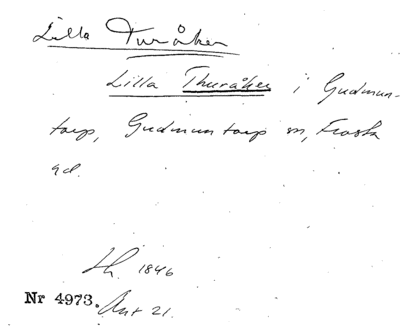 Lilla Turåker
Lilla Thuråker i Gudmun-
torp, Gudmuntorp sn, Frosta
hd.
Lh. 1846
Nr 4973. Ant 21.